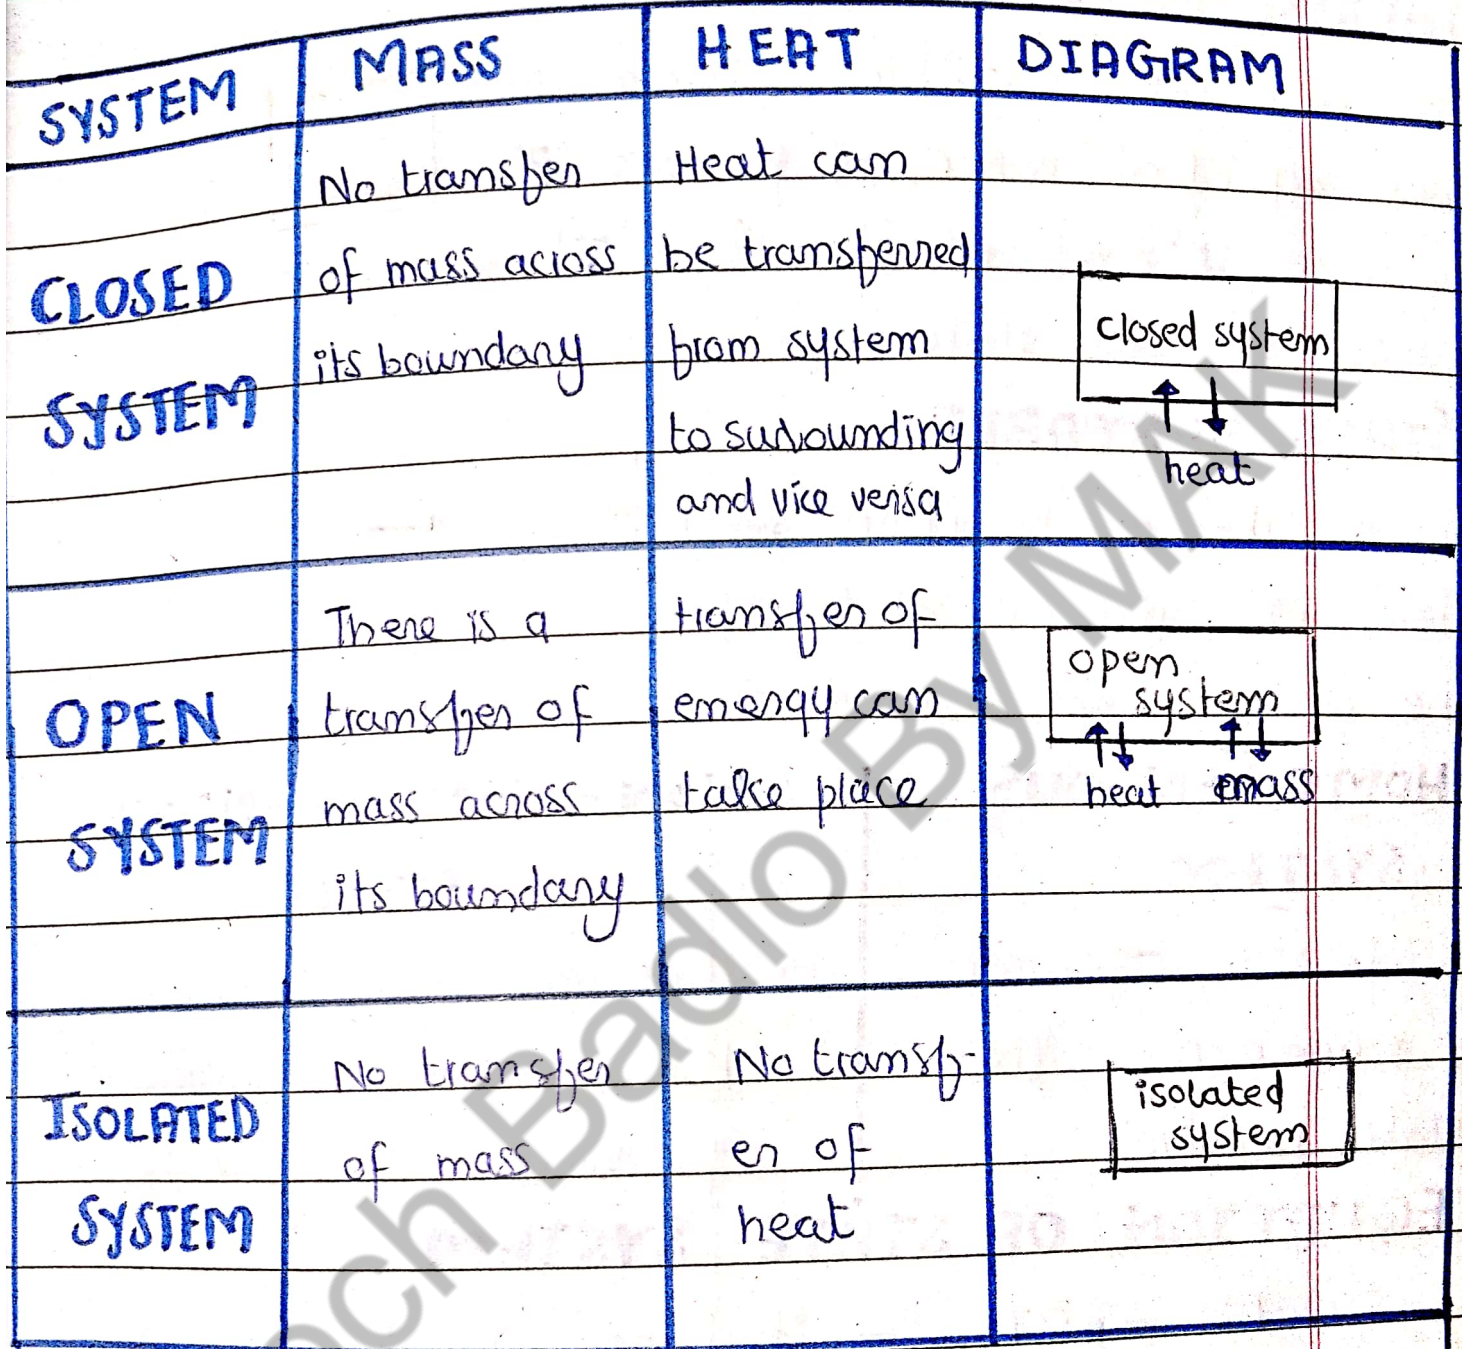 SYSTEM
MASS
HEAT
DIAGRAM
CLOSED
SYSTEM
No transfer
of mass across
its boundary
Heat can
be transferred
from system
to surrounding
and vice versa
closed system
heat
OPEN
SYSTEM
There is a
transfer of
mass across
its boundary
transfer of
energy can
take place
open
system
heat mass
ISOLATED
SYSTEM
No transfer
of mass
No transf-
er of
heat
isolated
system
ch Badlo By MAK